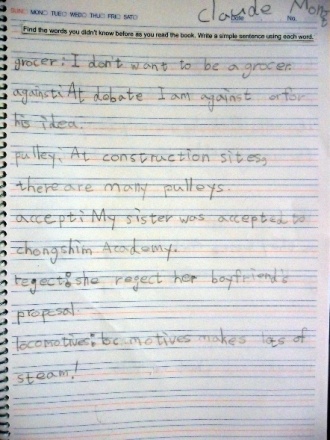 claude Mone
SUN○ MON○ TUE○ WED○ THU○ FRI○ SAT○ Date No.
Find the words you didn't know before as you read the book. Write a simple sentence using each word.
grocer: I don't want to be a grocer.
against: At debate I am against or for
his idea.
pulley: At construction sites,
there are many pulleys.
accept: My sister was accepted to
chongshim Academy.
regect: she regect her boyfriend's
proposal.
locomotives: locmotives makes lots of
steam!